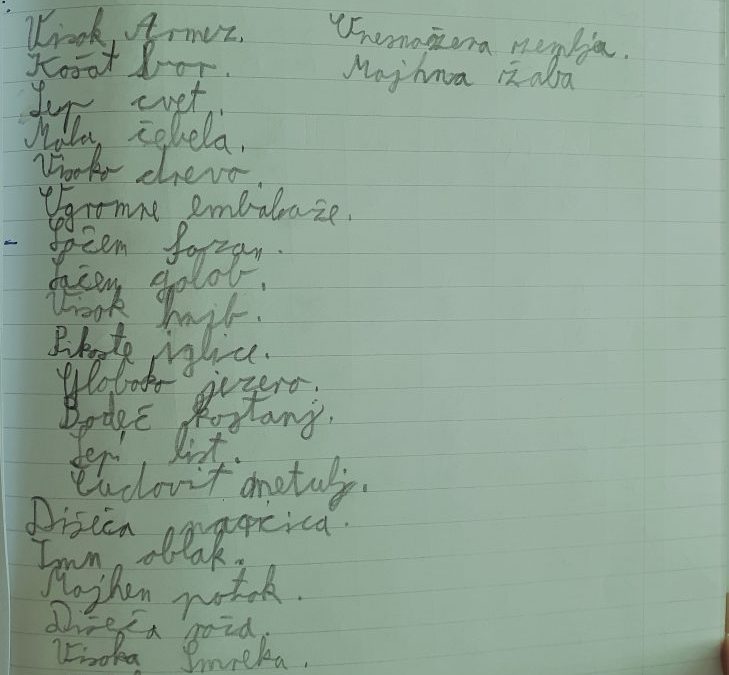 Visok Armez.
Košat bor.
Lep cvet.
Mala čebela.
Visoko drevo.
Ogromne embalaže.
Lačen fazan.
Lačen golob.
Visok hrib.
Pikaste iglice.
Globoko jezero.
Bodeč kostanj.
Lepi list.
Čudovit metulj.
Dišeča
oblak.
Majhen potok.
Dišeča roža.
Visoka Smreka.
Onesnažena zemlja.
Majhna žaba